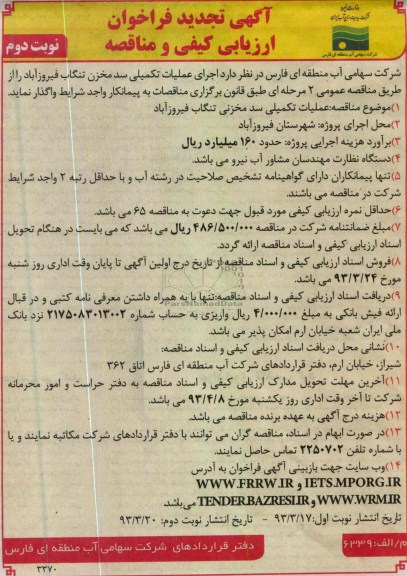 آگهی تجدید فراخوان
ارزیابی کیفی و مناقصه
نوبت دوم
شرکت سهامی آب منطقه ای فارس
شرکت سهامی آب منطقه ای فارس در نظر دارد اجرای عملیات تکمیلی سد مخزن تنگاب فیروزآباد را از
طریق مناقصه عمومی ۲ مرحله ای طبق قانون برگزاری مناقصات به پیمانکار واجد شرایط واگذار نماید.
۱)موضوع مناقصه:عملیات تکمیلی سد مخزنی تنگاب فیروزآباد
۲)محل اجرای پروژه: شهرستان فیروزآباد
۳)برآورد هزینه اجرایی پروژه: حدود ۱۶۰ میلیارد ریال
۴)دستگاه نظارت مهندسان مشاور آب نیرو می باشد.
۵)تنها پیمانکاران دارای گواهینامه تشخیص صلاحیت در رشته آب و با حداقل رتبه ۲ واجد شرایط
شرکت در مناقصه می باشند.
۶)حداقل نمره ارزیابی کیفی مورد قبول جهت دعوت به مناقصه ۶۵ می باشد.
۷)مبلغ ضمانتنامه شرکت در مناقصه ۴۸۶/۵۰۰/۰۰۰ ریال می باشد که می بایست در هنگام تحویل
اسناد ارزیابی کیفی و اسناد مناقصه ارائه گردد.
۸)فروش اسناد ارزیابی کیفی و اسناد مناقصه:از تاریخ درج اولین آگهی تا پایان وقت اداری روز شنبه
مورخ ۹۳/۳/۲۴ می باشد.
۹)دریافت اسناد ارزیابی کیفی و اسناد مناقصه:تنها با به همراه داشتن معرفی نامه کتبی و در قبال
ارائه فیش بانکی به مبلغ ۴/۰۰۰/۰۰۰ ریال واریزی به حساب شماره ۲۱۷۵۰۸۳۰۱۳۰۰۲ نزد بانک
ملی ایران شعبه خیابان ارم امکان پذیر می باشد.
۱۰)نشانی محل دریافت اسناد ارزیابی کیفی و اسناد مناقصه:
شیراز، خیابان ارم، دفتر قراردادهای شرکت آب منطقه ای فارس اتاق ۳۶۲
۱۱)آخرین مهلت تحویل مدارک ارزیابی کیفی و اسناد مناقصه به دفتر حراست و امور محرمانه
شرکت تا آخر وقت اداری روز یکشنبه مورخ ۹۳/۴/۸ می باشد.
۱۲)هزینه درج آگهی به عهده برنده مناقصه می باشد.
۱۳)در صورت ابهام در اسناد، مناقصه گران می توانند با دفتر قراردادهای شرکت مکاتبه نمایند و یا
با شماره تلفن ۲۲۵۰۷۰۲ تماس حاصل نمایند.
۱۴)وب سایت جهت بازبینی آگهی فراخوان به آدرس
IETS.MPORG.IR و WWW.FRRW.IR
WWW.WRM.IR و TENDER.BAZRESI.IR می باشد
تاریخ انتشار نوبت اول:۹۳/۳/۱۷ - تاریخ انتشار نوبت دوم: ۹۳/۳/۲۰
م/الف: ۶۳۳۹
دفتر قراردادهای شرکت سهامی آب منطقه ای فارس
۳۳۷۰